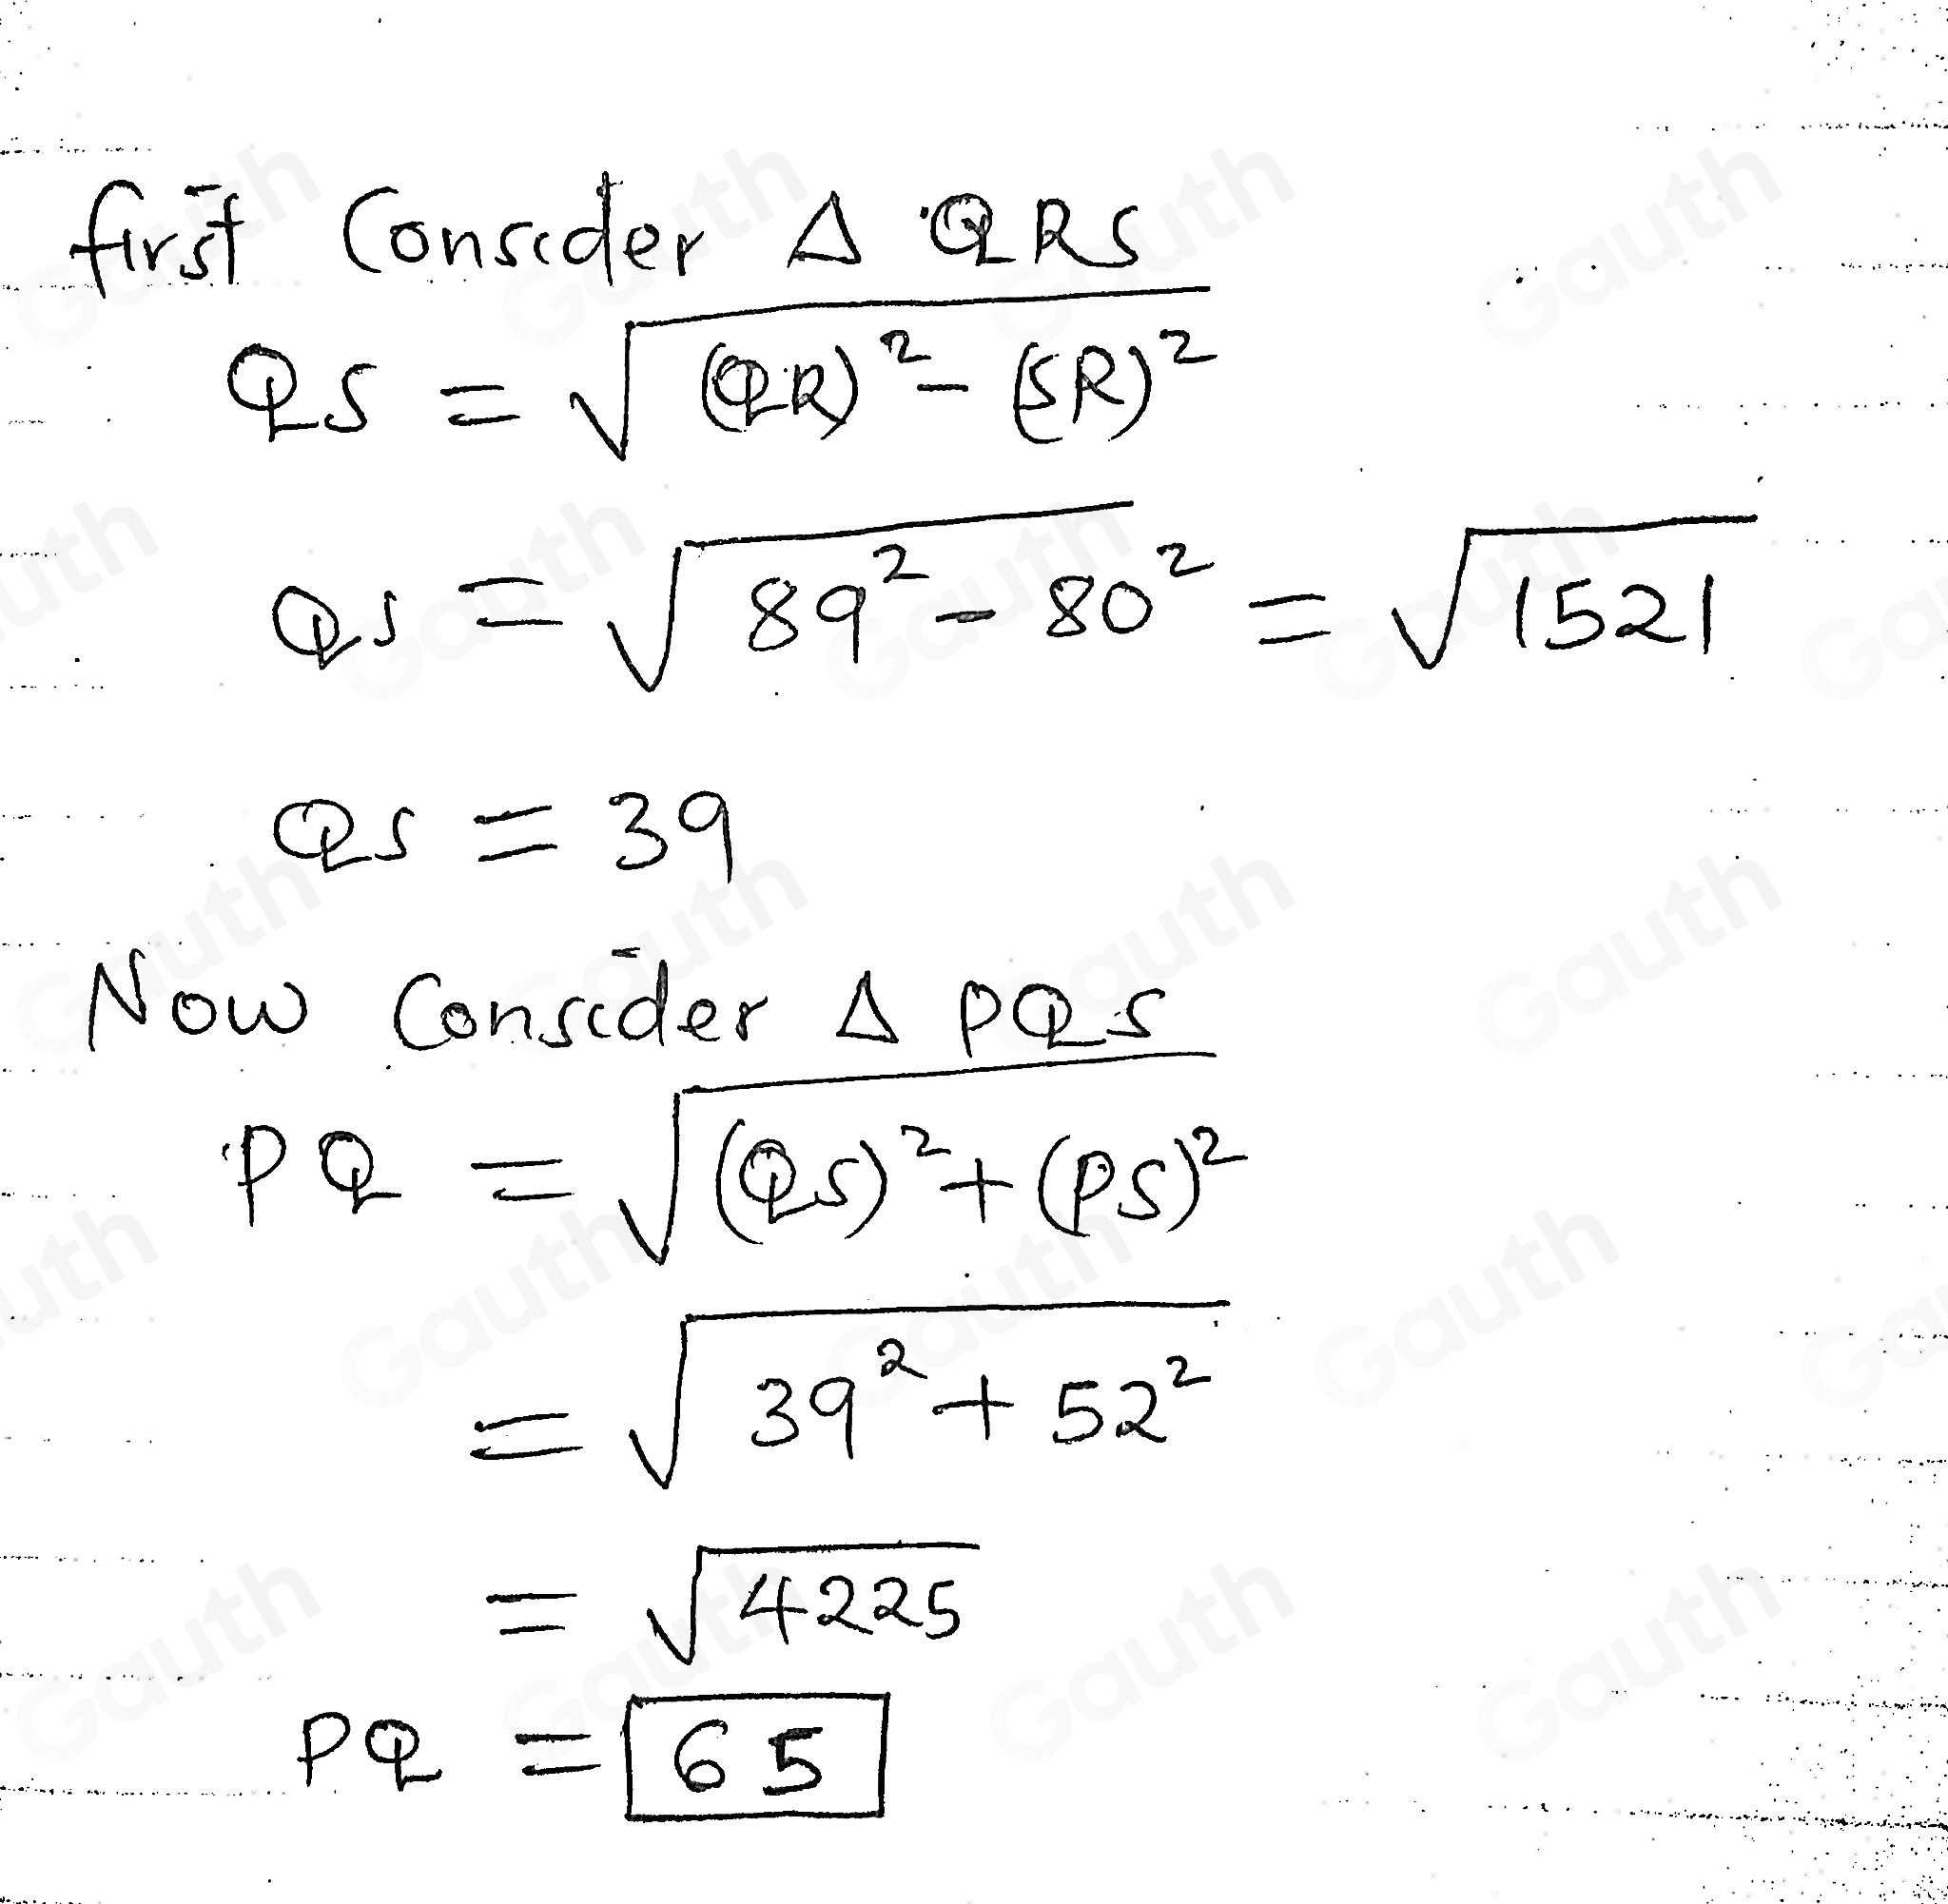 first Consider Δ QRS
QS = √(QR)² - (SR)²
QS = √89² - 80² = √1521
QS = 39
Now Consider Δ PQS
PQ = √(QS)² + (PS)²
= √39² + 52²
= √4225
PQ = 65
Gauth